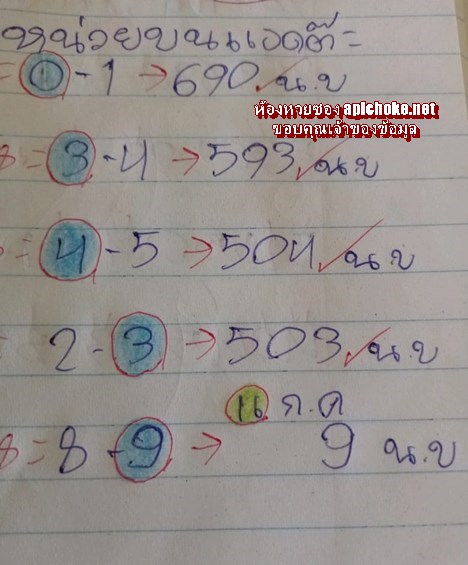 หน่วยบนแอดต๊ะ
= 0 - 1 → 690 / น.บ
ห้องหวยซอง apichoke.net
ขอบคุณเจ้าของข้อมุล
8 = 3 - 4 → 593 / น.บ
= 4 - 5 → 504 / น.บ
= 2 - 3 → 503 / น.บ
16 ก.ค
8 = 8 - 9 → 9 น.บ